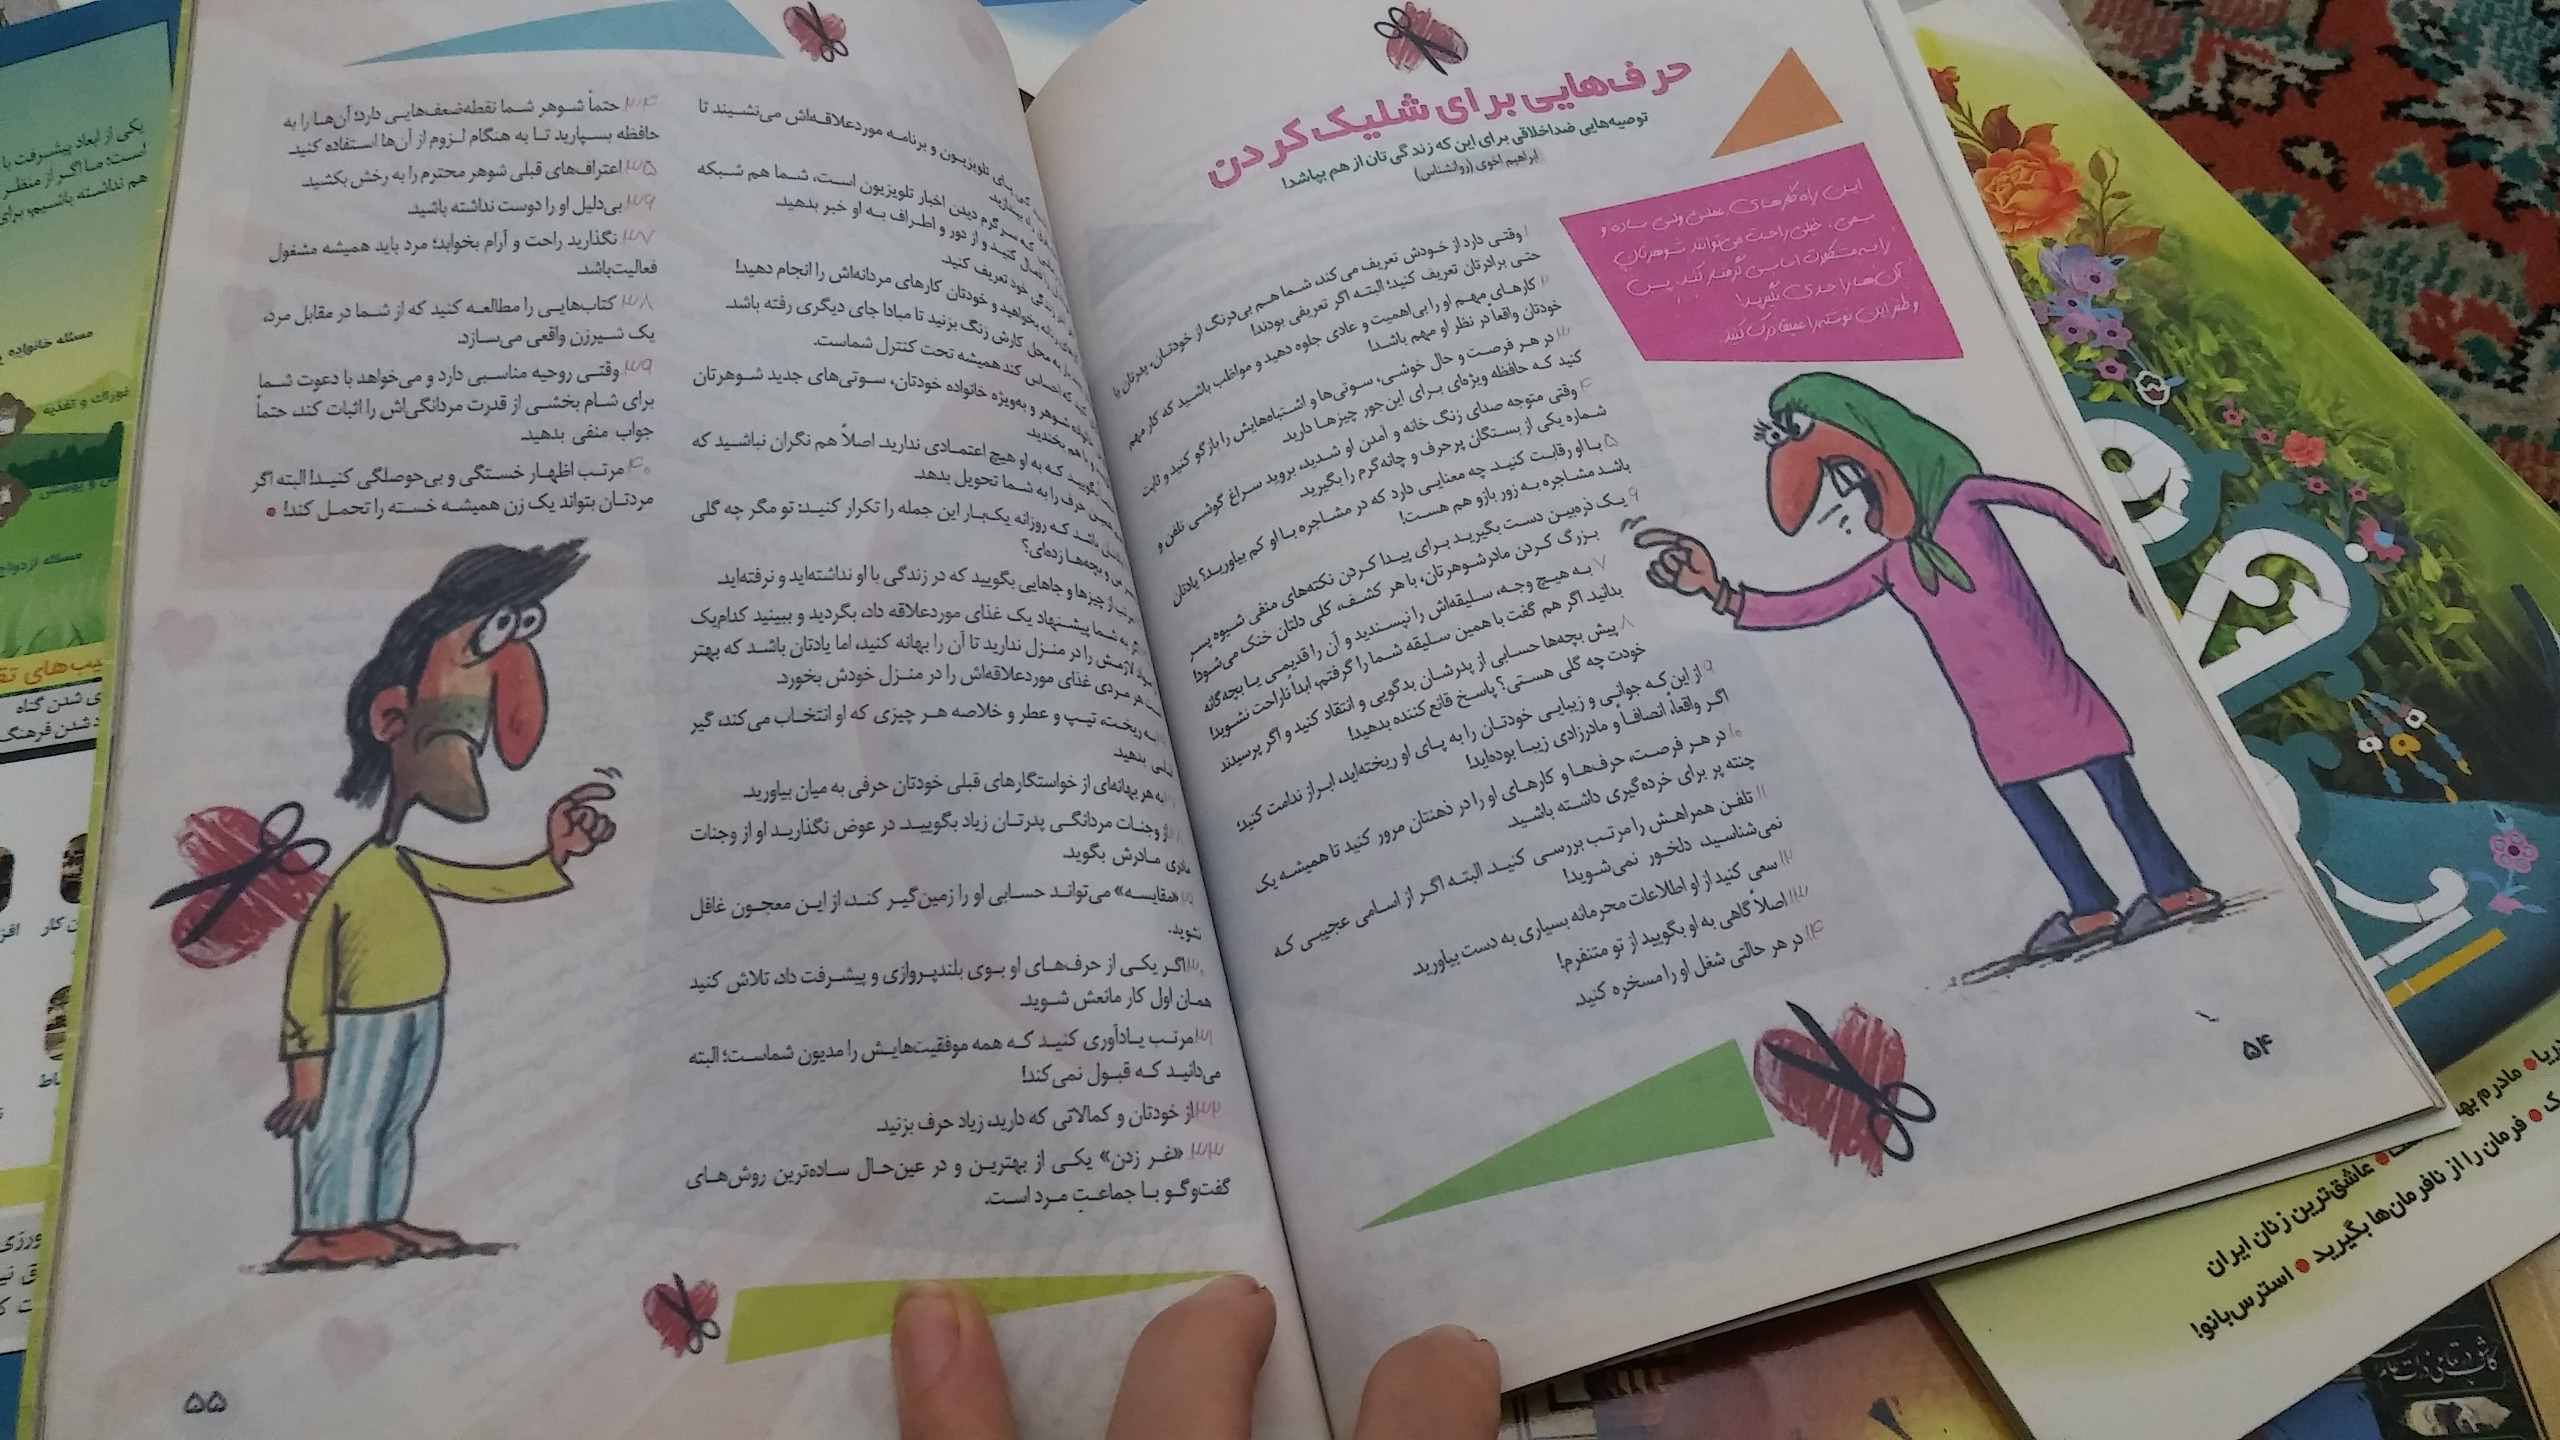 حرف‌هایی برای شلیک کردن
توصیه‌هایی ضداخلاقی برای این که زندگی تان از هم بپاشد!
ابراهیم اخوی (روانشناس)
این راه‌کارهای عملی ولی ساده و
سمی، خیلی راحت می‌توانند شوهرتان
را به مشکلات اساسی گرفتار کند؛ پس
آن‌ها را جدی نگیرید!
و طنز این نوشته را عمیقا درک کنید.
۱ وقتی دارد از خودش تعریف می کند، شما هم بی‌درنگ از خودتان، پدرتان یا
حتی برادرتان تعریف کنید؛ البته اگر تعریفی بودند!
۲ کارهای مهم او را بی‌اهمیت و عادی جلوه دهید و مواظب باشید که کار مهم
خودتان واقعاً در نظر او مهم باشد!
۳ در هر فرصت و حال خوشی، سوتی‌ها و اشتباه‌هایش را بازگو کنید و ثابت
کنید که حافظه ویژه‌ای برای این‌جور چیزها دارید.
۴ وقتی متوجه صدای زنگ خانه و آمدن او شدید، بروید سراغ گوشی تلفن و
شماره یکی از بستگان پرحرف و چانه‌گرم را بگیرید.
۵ با او رقابت کنید. چه معنایی دارد که در مشاجره با او کم بیاورید؟ یادتان
باشد مشاجره به زور بازو هم هست!
۶ یک ذره‌بین دست بگیرید برای پیدا کردن نکته‌های منفی شیوه پسر
بزرگ کردن مادرشوهرتان، با هر کشف، کلی دلتان خنک می‌شود!
۷ به هیچ وجه، سلیقه‌اش را نپسندید و آن را قدیمی یا بچه‌گانه
بدانید. اگر هم گفت با همین سلیقه شما را گرفتم، ابداً ناراحت نشوید!
۸ پیش بچه‌ها حسابی از پدرشان بدگویی و انتقاد کنید و اگر پرسیدند
خودت چه گلی هستی؟ پاسخ قانع کننده بدهید!
۹ از این‌که جوانی و زیبایی خودتان را به پای او ریخته‌اید، ابراز ندامت کنید؛
اگر واقعاً، انصافاً و مادرزادی زیبا بوده‌اید!
۱۰ در هر فرصت، حرف‌ها و کارهای او را در ذهنتان مرور کنید تا همیشه یک
چنته پر برای خرده‌گیری داشته باشید.
۱۱ تلفن همراهش را مرتب بررسی کنید. البته اگر از اسامی عجیبی که
نمی‌شناسید، دلخور نمی‌شوید!
۱۲ سعی کنید از او اطلاعات محرمانه بسیاری به دست بیاورید.
۱۳ اصلاً گاهی به او بگویید از تو متنفرم!
۱۴ در هر حالتی شغل او را مسخره کنید.
۵۴
پای تلویزیون و برنامه موردعلاقه‌اش می‌نشیند تا
که سرگرم دیدن اخبار تلویزیون است، شما هم شبکه
فعال کنید و از دور و اطراف به او خبر بدهید.
خود تعریف کنید.
بخواهید و خودتان کارهای مردانه‌اش را انجام دهید!
به محل کارش زنگ بزنید تا مبادا جای دیگری رفته باشد.
که احساس کند همیشه تحت کنترل شماست.
شوهر و به‌ویژه خانواده خودتان، سوتی‌های جدید شوهرتان
و با هم بخندید.
بگویید که به او هیچ اعتمادی ندارید. اصلاً هم نگران نباشید که
همین حرف را به شما تحویل بدهد.
باشد که روزانه یک‌بار این جمله را تکرار کنید: تو مگر چه گلی
و بچه‌ها زده‌ای؟
از چیزها و جاهایی بگویید که در زندگی با او نداشته‌اید و نرفته‌اید.
به شما پیشنهاد یک غذای موردعلاقه داد، بگردید و ببینید کدام‌یک
لازمش را در منزل ندارید تا آن را بهانه کنید، اما یادتان باشد که بهتر
هر مردی غذای موردعلاقه‌اش را در منزل خودش بخورد.
به ریخت، تیپ و عطر و خلاصه هر چیزی که او انتخاب می‌کند، گیر
بدهید.
به هر بهانه‌ای از خواستگارهای قبلی خودتان حرفی به میان بیاورید.
از وجنات مردانگی پدرتان زیاد بگویید. در عوض نگذارید او از وجنات
مادری مادرش بگوید.
«مقایسه» می‌تواند حسابی او را زمین‌گیر کند، از این معجون غافل
نشوید.
۳۰ اگر یکی از حرف‌های او بوی بلندپروازی و پیشرفت داد، تلاش کنید
همان اول کار مانعش شوید.
۳۱ مرتب یادآوری کنید که همه موفقیت‌هایش را مدیون شماست؛ البته
می‌دانید که قبول نمی‌کند!
۳۲ از خودتان و کمالاتی که دارید، زیاد حرف بزنید.
۳۳ «غر زدن» یکی از بهترین و در عین‌حال ساده‌ترین روش‌های
گفت‌وگو با جماعت مرد است.
۳۴ حتماً شوهر شما نقطه‌ضعف‌هایی دارد؛ آن‌ها را به
حافظه بسپارید تا به هنگام لزوم از آن‌ها استفاده کنید.
۳۵ اعتراف‌های قبلی شوهر محترم را به رخش بکشید.
۳۶ بی‌دلیل او را دوست نداشته باشید.
۳۷ نگذارید راحت و آرام بخوابد؛ مرد باید همیشه مشغول
فعالیت‌باشد.
۳۸ کتاب‌هایی را مطالعه کنید که از شما در مقابل مرد،
یک شیرزن واقعی می‌سازد.
۳۹ وقتی روحیه مناسبی دارد و می‌خواهد با دعوت شما
برای شام بخشی از قدرت مردانگی‌اش را اثبات کند، حتماً
جواب منفی بدهید.
۴۰ مرتب اظهار خستگی و بی‌حوصلگی کنید! البته اگر
مردتان بتواند یک زن همیشه خسته را تحمل کند!
۵۵
یکی از ابعاد پیشرفت با
است؛ ما اگر از منظر
هم نداشته باشیم، برای
مسئله خانواده
خوراک و تغذیه
و پوشش
مسئله ازدواج
ی شدن گناه
د شدن فرهنگ
مادرم
عاشق‌ترین زنان ایران
فرمان را از نافرمان‌ها بگیرید • استرس‌بانو!